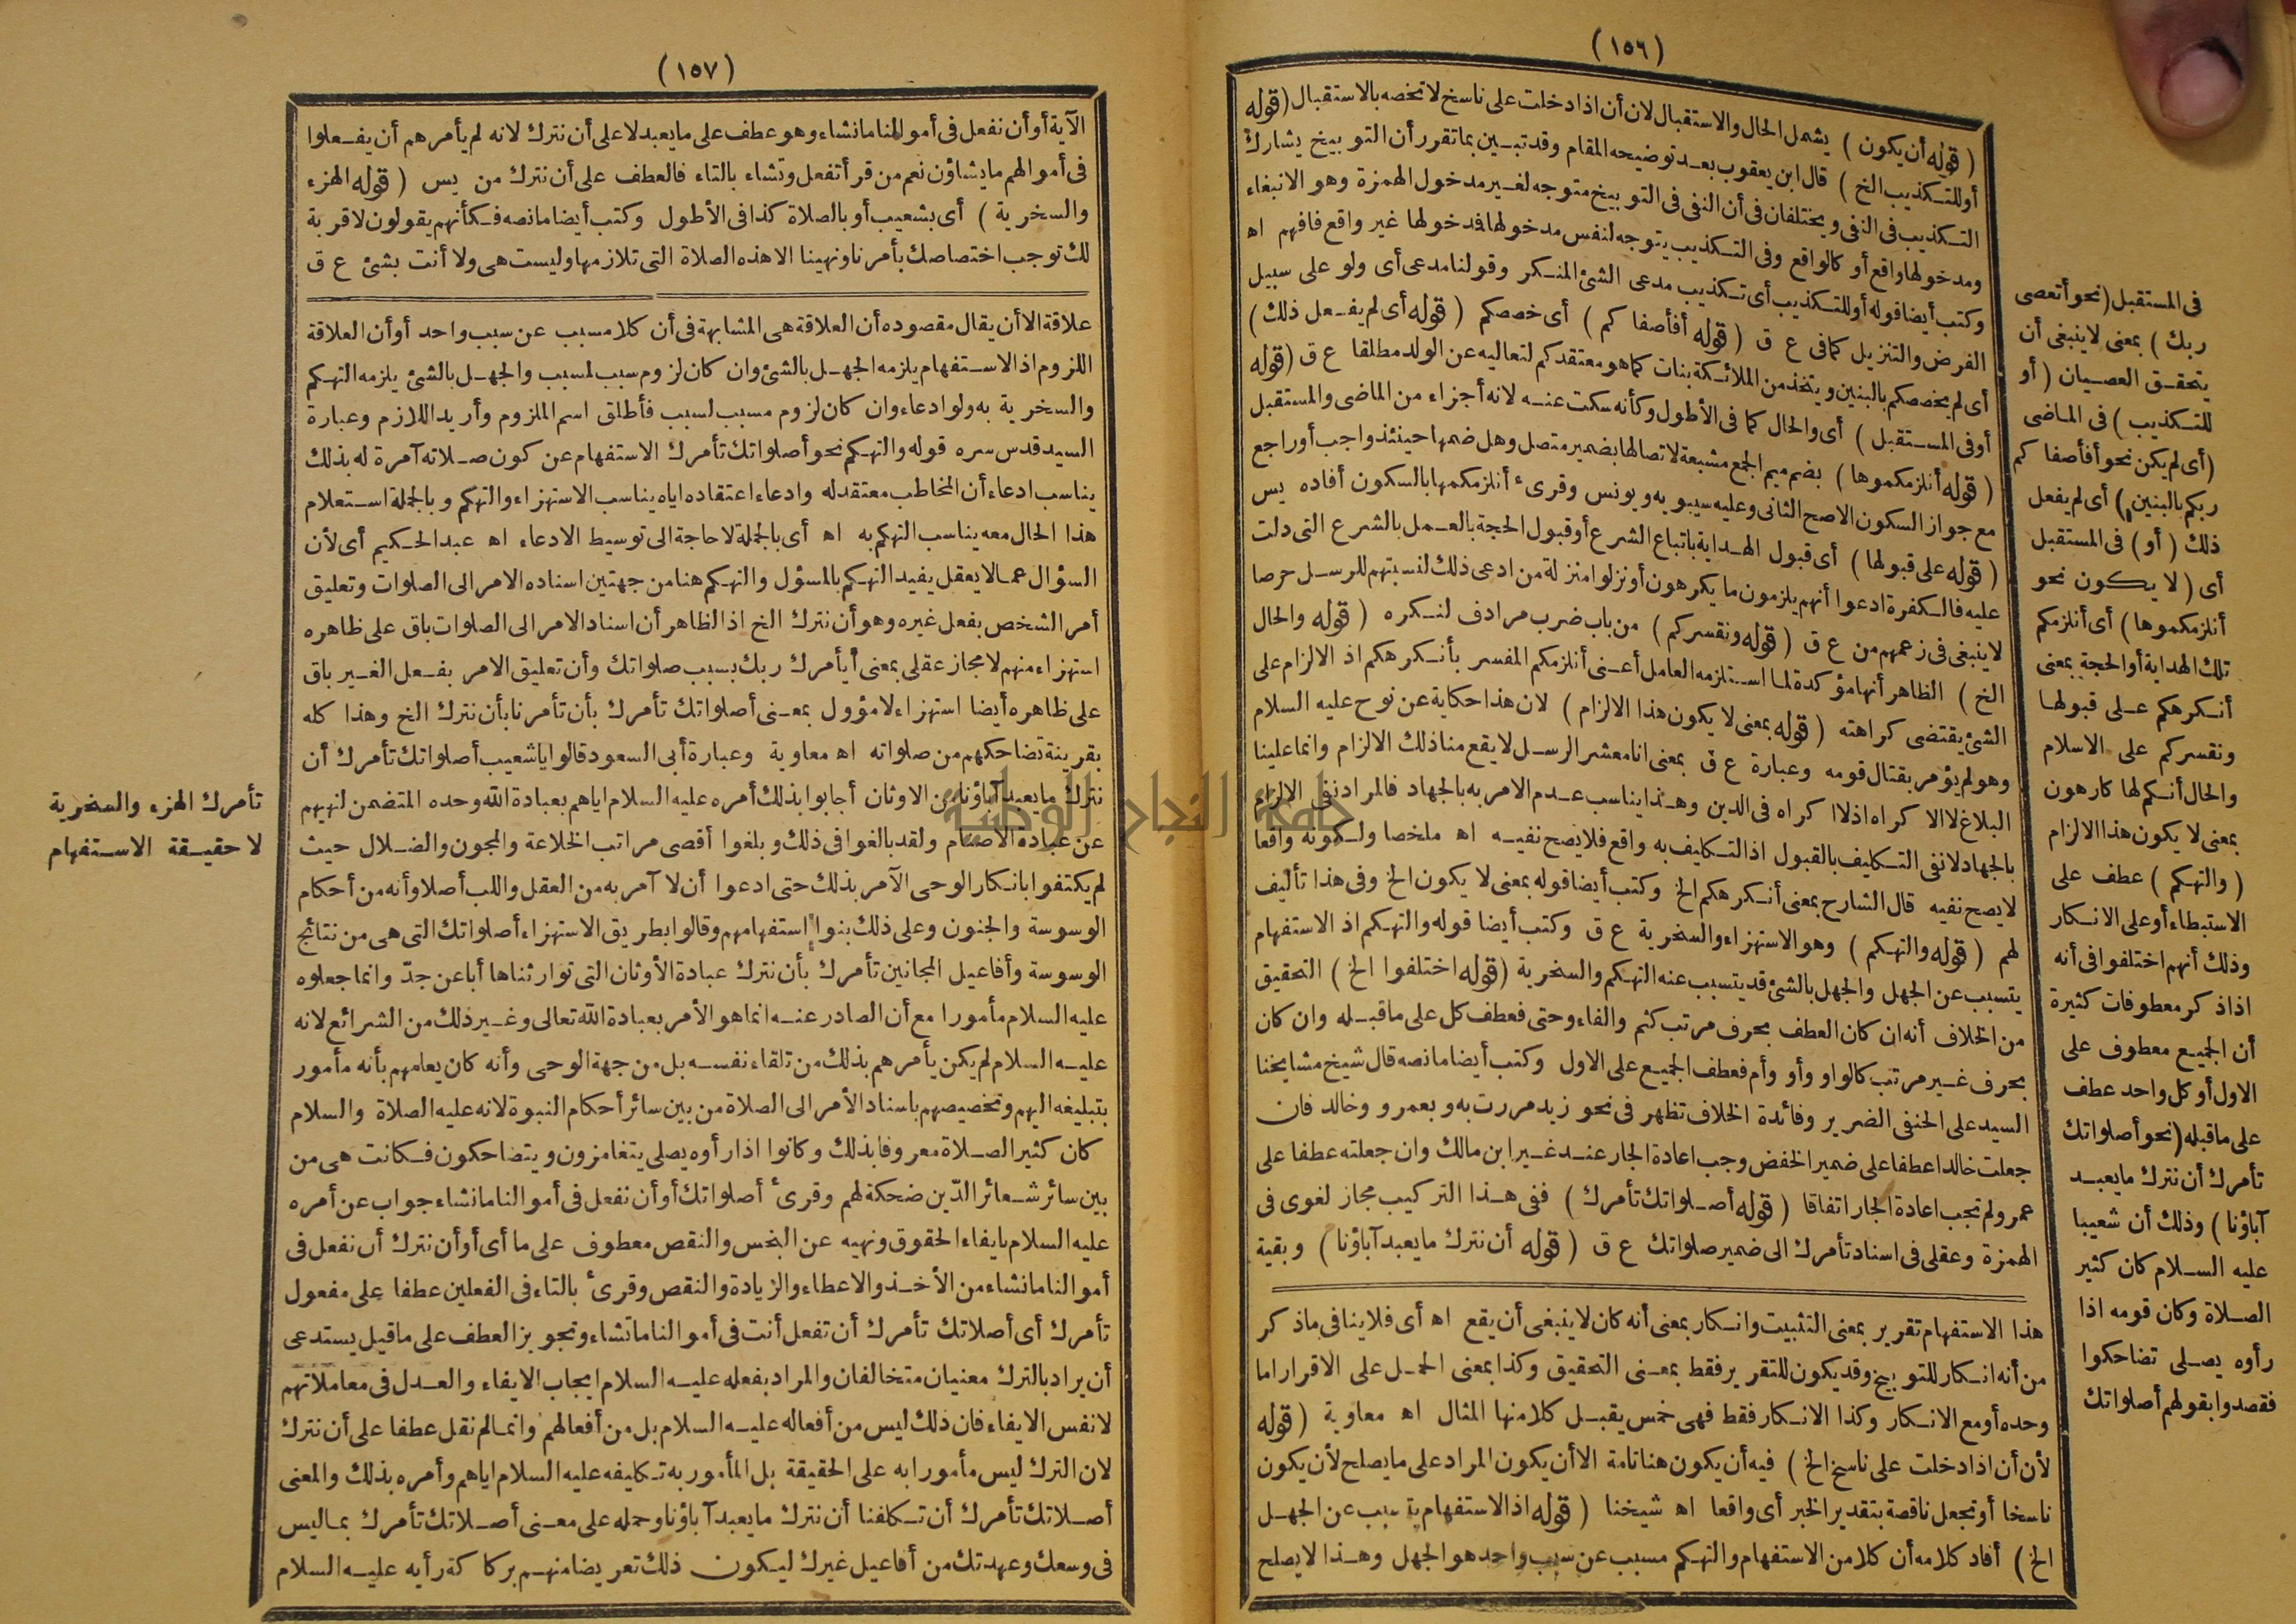 (١٥٦)
(قوله أن يكون) يشمل الحال والاستقبال لان أن اذا دخلت على ناسخ لا تخصه بالاستقبال (قوله
أو للتكذيب الخ) قال ابن يعقوب بعد توضيحه المقام وقد تبين بما تقرر أن التوبيخ يشارك
التكذيب فى النفى ويختلفان فى أن النفى فى التوبيخ متوجه لغير مدخول الهمزة وهو الانبغاء
ومدخولها واقع أو كالواقع وفى التكذيب يتوجه لنفس مدخولها فدخولها غير واقع فافهم اه
وكتب أيضا قوله أو للتكذيب أى تكذيب مدعى الشئ المنكر وقولنا مدعى أى ولو على سبيل
الفرض والتنزيل كما فى ع ق (قوله أفأصفاكم) أى خصصكم (قوله أى لم يفعل ذلك)
أى لم يخصصكم بالبنين ويتخذ من الملائكة بنات كما هو معتقدكم لتعاليه عن الولد مطلقا ع ق (قوله
أو فى المستقبل) أى والحال كما فى الأطول وكأنه سكت عنه لانه أجزاء من الماضى والمستقبل
(قوله أنلزمكموها) بضم ميم الجمع مشبعة لاتصالها بضمير متصل وهل ضمها حينئذ واجب أو راجح
مع جواز السكون الاصح الثانى وعليه سيبويه ويونس وقرىء أنلزمكمها بالسكون أفاده يس
(قوله على قبولها) أى قبول الهداية باتباع الشرع أو قبول الحجة بالعمل بالشرع التى دلت
عليه فالكفرة ادعوا أنهم يلزمون ما يكرهون أو نزلوا منزلة من ادعى ذلك لنسبتهم للرسل حرصا
لا ينبغى فى زعمهم من ع ق (قوله ونقسركم) من باب ضرب مرادف لنكره (قوله والحال
الخ) الظاهر أنها مؤكدة لما استلزمه العامل أعنى أنلزمكم المفسر بأنكرهكم اذ الالزام على
الشئ يقتضى كراهته (قوله بمعنى لا يكون هذا الالزام) لان هذا حكاية عن نوح عليه السلام
وهو لم يؤمر بقتال قومه وعبارة ع ق بمعنى انا معشر الرسل لا يقع منا ذلك الالزام وانما علينا
البلاغ لا الاكراه اذ لا اكراه فى الدين وهذا يناسب عدم الامر به بالجهاد فالمراد نفى الالزام
بالجهاد لا نفى التكليف بالقبول اذ التكليف به واقع فلا يصح نفيه اه ملخصا ولكونه واقعا
لا يصح نفيه قال الشارح بمعنى أنكرهكم الخ وكتب أيضا قوله بمعنى لا يكون الخ وفى هذا تأليف
لهم (قوله والتهكم) وهو الاستهزاء والسخرية ع ق وكتب أيضا قوله والتهكم اذ الاستفهام
يتسبب عن الجهل والجهل بالشئ قد يتسبب عنه التهكم والسخرية (قوله اختلفوا الخ) التحقيق
من الخلاف أنه ان كان العطف بحرف مرتب كثم والفاء وحتى فعطف كل على ما قبله وان كان
بحرف غير مرتب كالواو وأو وأم فعطف الجميع على الاول وكتب أيضا ما نصه قال شيخ مشايخنا
السيد على الحنفى الضرير وفائدة الخلاف تظهر فى نحو زيد مررت به وبعمرو وخالد فان
جعلت خالدا عطفا على ضمير الخفض وجب اعادة الجار عند غير ابن مالك وان جعلته عطفا على
عمرو لم تجب اعادة الجار اتفاقا (قوله أصلواتك تأمرك) ففى هذا التركيب مجاز لغوى فى
الهمزة وعقلى فى اسناد تأمرك الى ضمير صلواتك ع ق (قوله أن نترك ما يعبد آباؤنا) وبقية
هذا الاستفهام تقرير بمعنى التثبيت وانكار بمعنى أنه كان لا ينبغى أن يقع اه أى فلا ينافى ما ذكر
من أنه انكار للتوبيخ وقد يكون للتقرير فقط بمعنى التحقيق وكذا بمعنى الحمل على الاقرار اما
وحده أو مع الانكار وكذا الانكار فقط فهى خمس يقبل كلا منها المثال اه معاوية (قوله
لأن أن اذا دخلت على ناسخ الخ) فيه أن يكون هنا تامة الا أن يكون المراد على ما يصلح لأن يكون
ناسخا أو تجعل ناقصة بتقدير الخبر أى واقعا اه شيخنا (قوله اذ الاستفهام يتسبب عن الجهل
الخ) أفاد كلامه أن كلا من الاستفهام والتهكم مسبب عن سبب واحد هو الجهل وهذا لا يصلح
فى المستقبل (نحو أتعصى
ربك) بمعنى لا ينبغى أن
يتحقق العصيان (أو
للتكذيب) فى الماضى
(أى لم يكن نحو أفأصفاكم
ربكم بالبنين) أى لم يفعل
ذلك (أو) فى المستقبل
أى (لا يكون نحو
أنلزمكموها) أى أنلزمكم
تلك الهداية أو الحجة بمعنى
أنكرهكم على قبولها
ونقسركم على الاسلام
والحال أنكم لها كارهون
بمعنى لا يكون هذا الالزام
(والتهكم) عطف على
الاستبطاء أو على الانكار
وذلك أنهم اختلفوا فى أنه
اذا ذكر معطوفات كثيرة
أن الجميع معطوف على
الاول أو كل واحد عطف
على ما قبله (نحو أصلواتك
تأمرك أن نترك ما يعبد
آباؤنا) وذلك أن شعيبا
عليه السلام كان كثير
الصلاة وكان قومه اذا
رأوه يصلى تضاحكوا
فقصدوا بقولهم أصلواتك
(١٥٧)
الآية أو أن نفعل فى أموالنا ما نشاء وهو عطف على ما يعبد لا على أن نترك لانه لم يأمرهم أن يفعلوا
فى أموالهم ما يشاؤن نعم من قرأ تفعل وتشاء بالتاء فالعطف على أن نترك من يس (قوله الهزء
والسخرية) أى بشعيب أو بالصلاة كذا فى الأطول وكتب أيضا ما نصه فكأنهم يقولون لا قربة
لك توجب اختصاصك بأمرنا ونهينا الا هذه الصلاة التى تلازمها وليست هى ولا أنت بشئ ع ق
علاقة الا أن يقال مقصوده أن العلاقة هى المشابهة فى أن كلا مسبب عن سبب واحد أو أن العلاقة
اللزوم اذ الاستفهام يلزمه الجهل بالشئ وان كان لزوم سبب لمسبب والجهل بالشئ يلزمه التهكم
والسخرية به ولو ادعاء وان كان لزوم مسبب لسبب فأطلق اسم الملزوم وأريد اللازم وعبارة
السيد قدس سره قوله والتهكم نحو أصلواتك تأمرك الاستفهام عن كون صلاته آمرة له بذلك
يناسب ادعاء أن المخاطب معتقد له وادعاء اعتقاده اياه يناسب الاستهزاء والتهكم وبالجملة استعلام
هذا الحال معه يناسب التهكم به اه أى بالجملة لا حاجة الى توسيط الادعاء اه عبد الحكيم أى لأن
السؤال عما لا يعقل يفيد التهكم بالمسؤل والتهكم هنا من جهتين اسناده الامر الى الصلوات وتعليق
أمر الشخص بفعل غيره وهو أن نترك الخ اذ الظاهر أن اسناد الامر الى الصلوات باق على ظاهره
استهزاء منهم لا مجاز عقلى بمعنى أيأمرك ربك بسبب صلواتك وأن تعليق الامر بفعل الغير باق
على ظاهره أيضا استهزاء لا مؤول بمعنى أصلواتك تأمرك بأن تأمرنا بأن نترك الخ وهذا كله
بقرينة تضاحكهم من صلواته اه معاوية وعبارة أبى السعود قالوا يا شعيب أصلواتك تأمرك أن
نترك ما يعبد آباؤنا من الاوثان أجابوا بذلك أمره عليه السلام اياهم بعبادة الله وحده المتضمن لنهيهم
عن عبادة الأصنام ولقد بالغوا فى ذلك وبلغوا أقصى مراتب الخلاعة والمجون والضلال حيث
لم يكتفوا بانكار الوحى الآمر بذلك حتى ادعوا أن لا آمر به من العقل واللب أصلا وأنه من أحكام
الوسوسة والجنون وعلى ذلك بنوا استفهامهم وقالوا بطريق الاستهزاء أصلواتك التى هى من نتائج
الوسوسة وأفاعيل المجانين تأمرك بأن نترك عبادة الأوثان التى توارثناها أبا عن جدّ وانما جعلوه
عليه السلام مأمورا مع أن الصادر عنه انما هو الأمر بعبادة الله تعالى وغير ذلك من الشرائع لانه
عليه السلام لم يكن يأمرهم بذلك من تلقاء نفسه بل من جهة الوحى وأنه كان يعلمهم بأنه مأمور
بتبليغه اليهم وتخصيصهم باسناد الأمر الى الصلاة من بين سائر أحكام النبوة لانه عليه الصلاة والسلام
كان كثير الصلاة معروفا بذلك وكانوا اذا رأوه يصلى يتغامزون ويتضاحكون فكانت هى من
بين سائر شعائر الدّين ضحكة لهم وقرئ أصلواتك أو أن نفعل فى أموالنا ما نشاء جواب عن أمره
عليه السلام بايفاء الحقوق ونهيه عن البخس والنقص معطوف على ما أى أو أن نترك أن نفعل فى
أموالنا ما نشاء من الأخذ والاعطاء والزيادة والنقص وقرئ بالتاء فى الفعلين عطفا على مفعول
تأمرك أى أصلاتك تأمرك أن تفعل أنت فى أموالنا ما تشاء وتجويز العطف على ما قيل يستدعى
أن يراد بالترك معنيان متخالفان والمراد بفعله عليه السلام ايجاب الايفاء والعدل فى معاملاتهم
لا نفس الايفاء فان ذلك ليس من أفعاله عليه السلام بل من أفعالهم وانما لم نقل عطفا على أن نترك
لان الترك ليس مأمورا به على الحقيقة بل المأمور به تكليفه عليه السلام اياهم وأمره بذلك والمعنى
أصلاتك تأمرك أن تكلفنا أن نترك ما يعبد آباؤنا وحمله على معنى أصلاتك تأمرك بما ليس
فى وسعك وعهدتك من أفاعيل غيرك ليكون ذلك تعريضا منهم بركاكة رأيه عليه السلام
تأمرك الهزء والسخرية
لا حقيقة الاستفهام
جامعة النجاح الوطنية